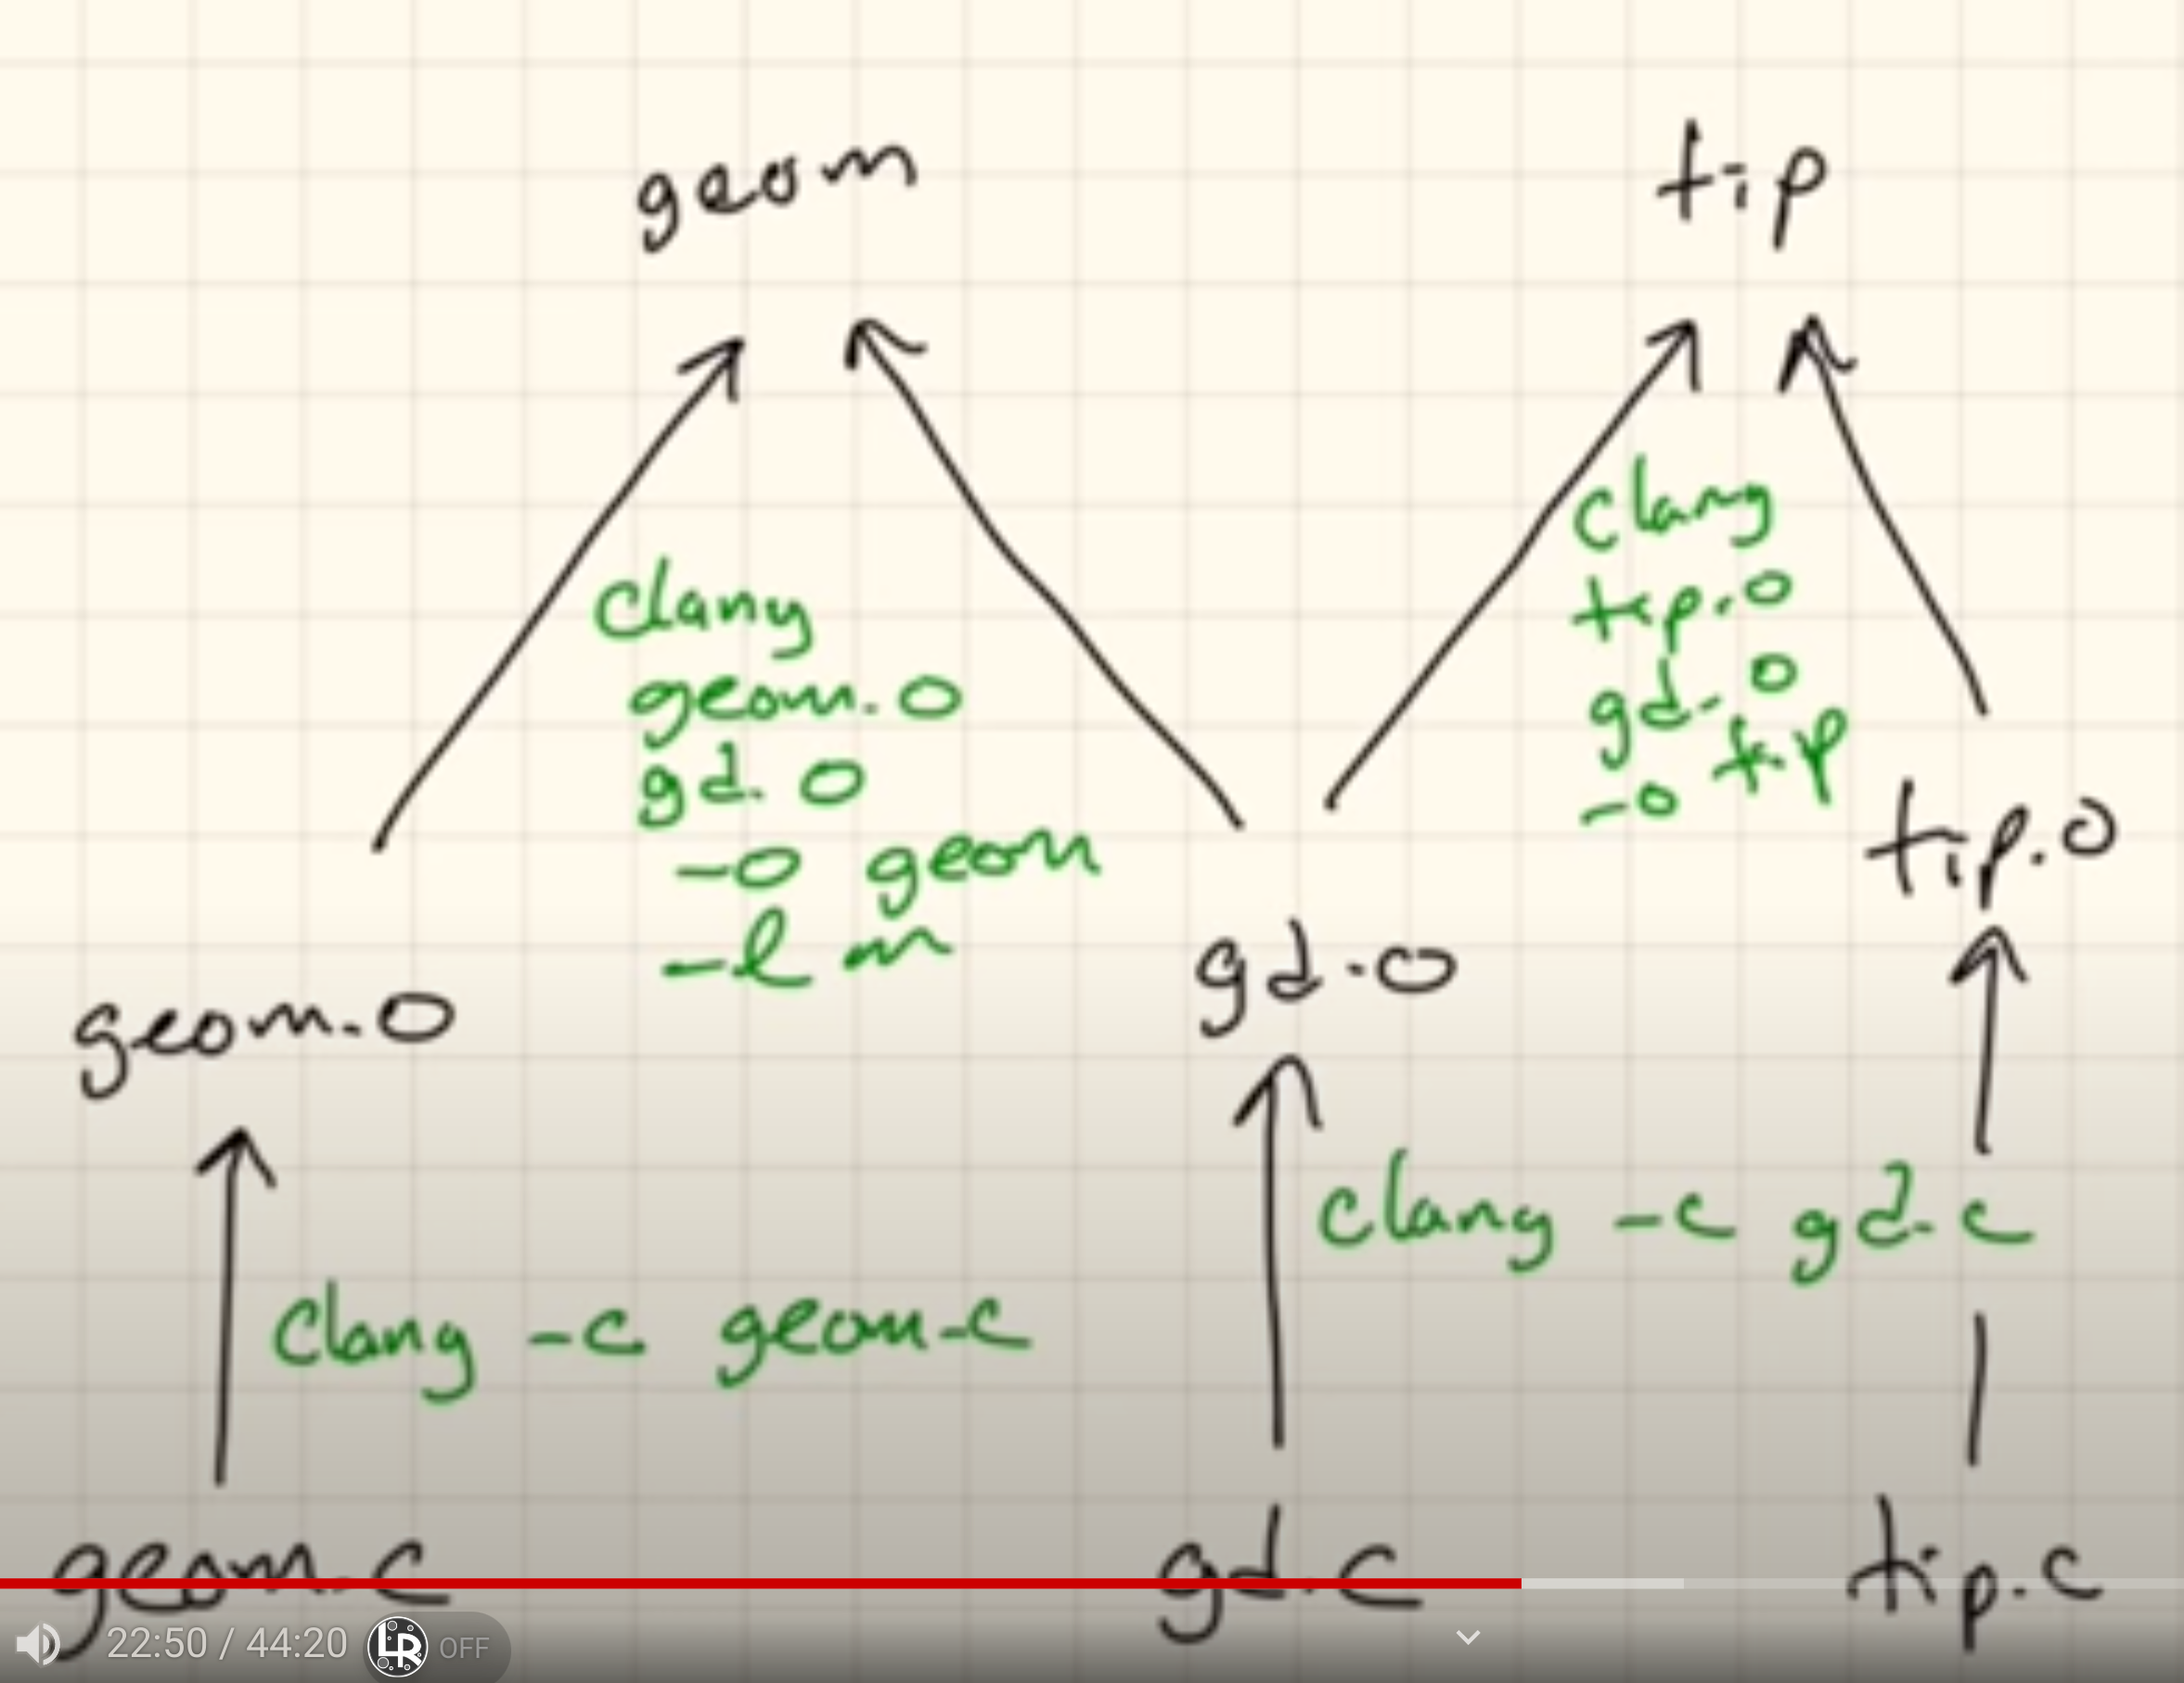 geom
tip
clang
geom.o
gd.o
-o geom
-l m
clang
tip.o
gd.o
-o tip
geom.o
gd.o
tip.o
clang -c geom.c
clang -c gd.c
geom.c
gd.c
tip.c
22:50 / 44:20
LR
OFF